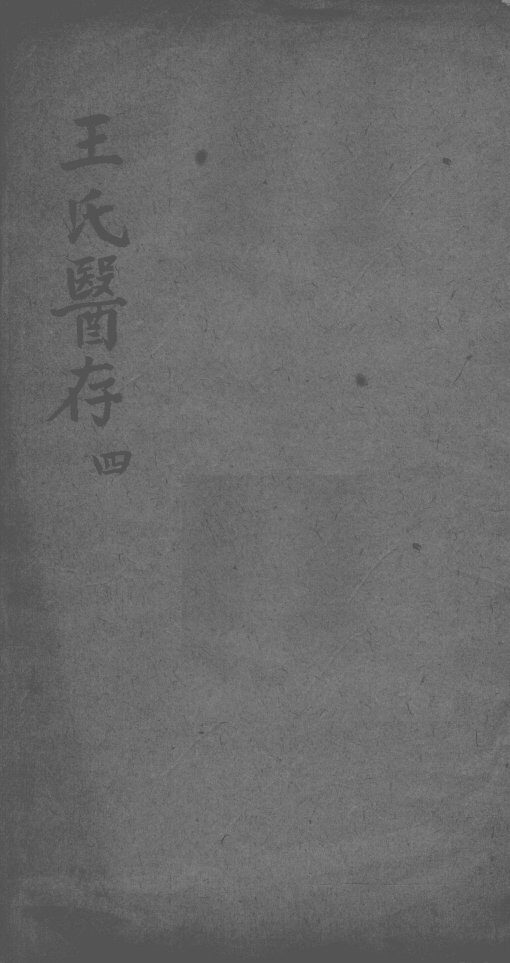 王氏醫存 四